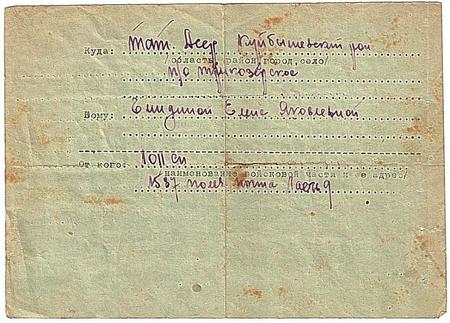 Куда: Тат. Асср Куйбышевский рай
/область, район, город, село/
п/о Трехозерское
Кому: Синдиной Елис Яковлевной
От кого: 1011 сп
/наименование войсковой части и ее адрес/
1537 полев почта